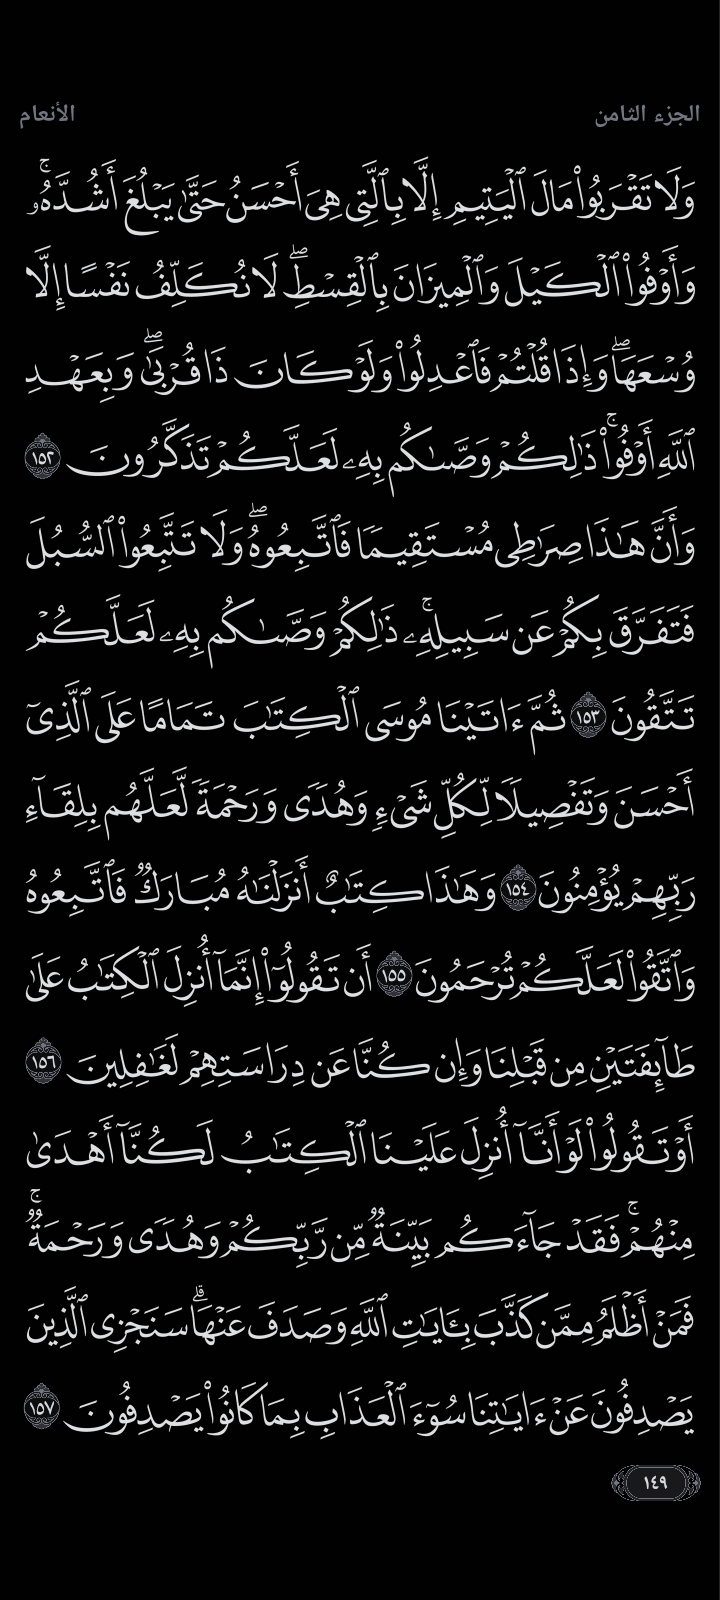 الجزء الثامن
الأنعام
وَلَا تَقۡرَبُواْ مَالَ ٱلۡيَتِيمِ إِلَّا بِٱلَّتِي هِيَ أَحۡسَنُ حَتَّىٰ يَبۡلُغَ أَشُدَّهُۥۚ
وَأَوۡفُواْ ٱلۡكَيۡلَ وَٱلۡمِيزَانَ بِٱلۡقِسۡطِۖ لَا نُكَلِّفُ نَفۡسًا إِلَّا
وُسۡعَهَاۖ وَإِذَا قُلۡتُمۡ فَٱعۡدِلُواْ وَلَوۡ كَانَ ذَا قُرۡبَىٰۖ وَبِعَهۡدِ
ٱللَّهِ أَوۡفُواْۚ ذَٰلِكُمۡ وَصَّىٰكُم بِهِۦ لَعَلَّكُمۡ تَذَكَّرُونَ ١٥٢
وَأَنَّ هَٰذَا صِرَٰطِي مُسۡتَقِيمٗا فَٱتَّبِعُوهُۖ وَلَا تَتَّبِعُواْ ٱلسُّبُلَ
فَتَفَرَّقَ بِكُمۡ عَن سَبِيلِهِۦۚ ذَٰلِكُمۡ وَصَّىٰكُم بِهِۦ لَعَلَّكُمۡ
تَتَّقُونَ ١٥٣ ثُمَّ ءَاتَيۡنَا مُوسَى ٱلۡكِتَٰبَ تَمَامًا عَلَى ٱلَّذِيٓ
أَحۡسَنَ وَتَفۡصِيلٗا لِّكُلِّ شَيۡءٖ وَهُدٗى وَرَحۡمَةٗ لَّعَلَّهُم بِلِقَآءِ
رَبِّهِمۡ يُؤۡمِنُونَ ١٥٤ وَهَٰذَا كِتَٰبٌ أَنزَلۡنَٰهُ مُبَارَكٞ فَٱتَّبِعُوهُ
وَٱتَّقُواْ لَعَلَّكُمۡ تُرۡحَمُونَ ١٥٥ أَن تَقُولُوٓاْ إِنَّمَآ أُنزِلَ ٱلۡكِتَٰبُ عَلَىٰ
طَآئِفَتَيۡنِ مِن قَبۡلِنَا وَإِن كُنَّا عَن دِرَاسَتِهِمۡ لَغَٰفِلِينَ ١٥٦
أَوۡ تَقُولُواْ لَوۡ أَنَّآ أُنزِلَ عَلَيۡنَا ٱلۡكِتَٰبُ لَكُنَّآ أَهۡدَىٰ
مِنۡهُمۡۚ فَقَدۡ جَآءَكُم بَيِّنَةٞ مِّن رَّبِّكُمۡ وَهُدٗى وَرَحۡمَةٞۚ
فَمَنۡ أَظۡلَمُ مِمَّن كَذَّبَ بِـَٔايَٰتِ ٱللَّهِ وَصَدَفَ عَنۡهَاۗ سَنَجۡزِي ٱلَّذِينَ
يَصۡدِفُونَ عَنۡ ءَايَٰتِنَا سُوٓءَ ٱلۡعَذَابِ بِمَا كَانُواْ يَصۡدِفُونَ ١٥٧
١٤٩